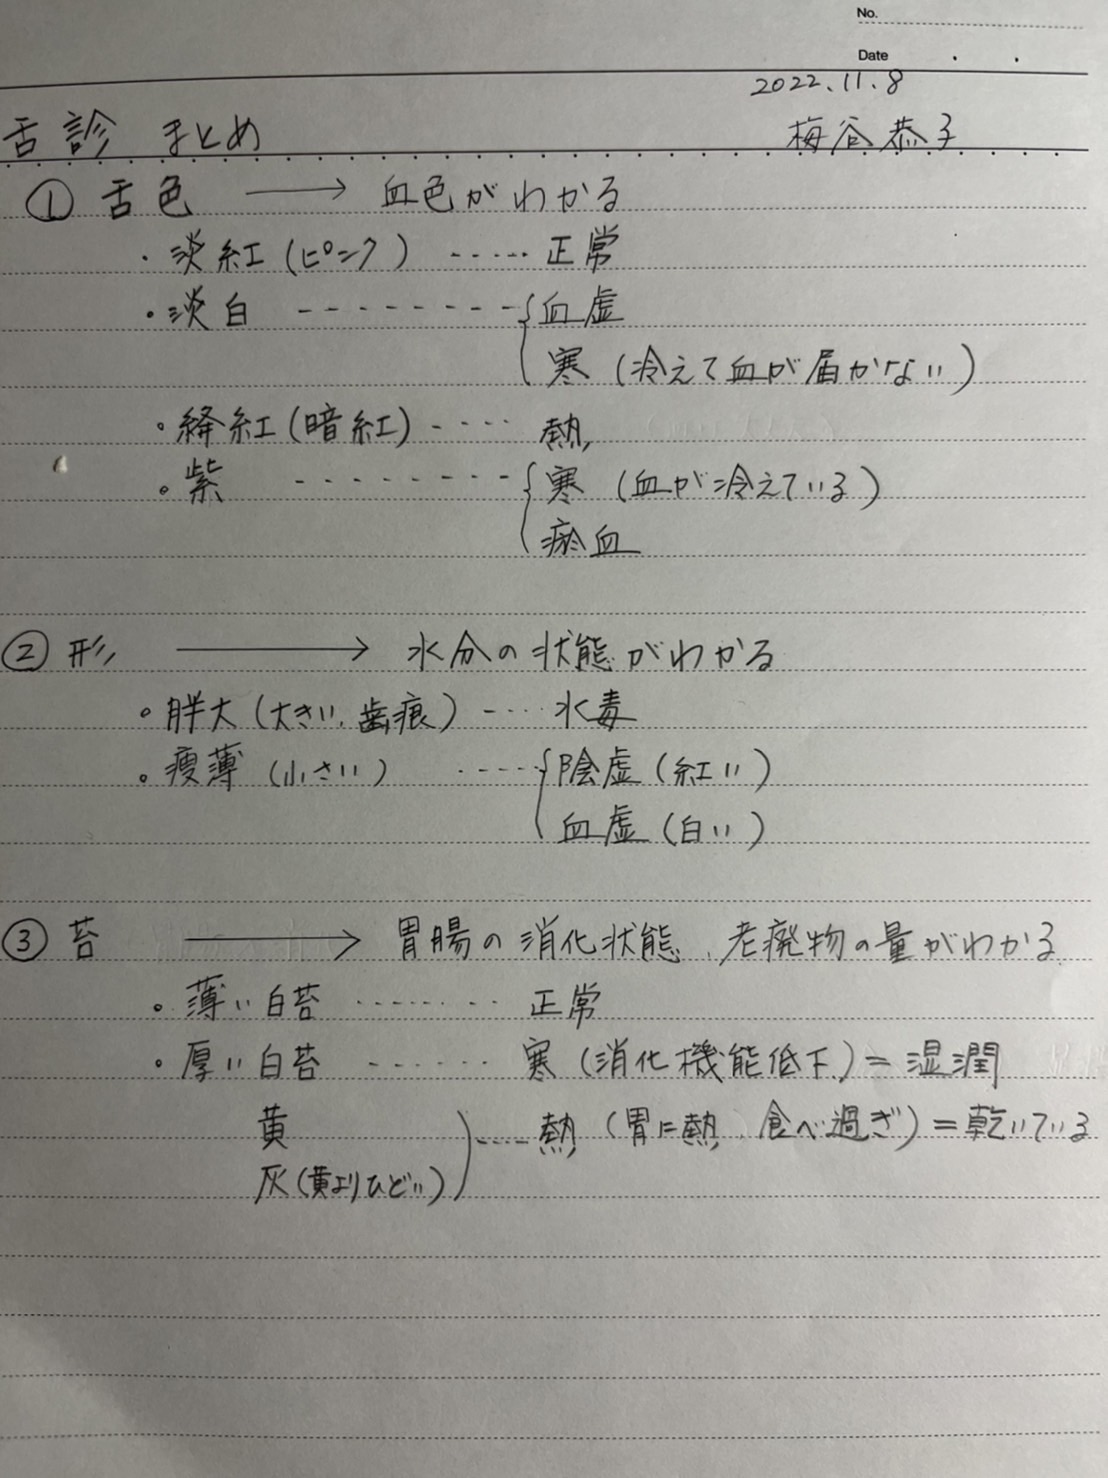 No.
Date . .
2022.11.8
舌診 まとめ 梅谷恭子
① 舌色 → 血色がわかる
・淡紅(ピンク) ‥‥‥ 正常
・淡白 --------- { 血虚
寒 (冷えて血が届かない)
・絳紅(暗紅) ----- 熱
・紫 --------- { 寒 (血が冷えている)
瘀血
② 形 → 水分の状態がわかる
・胖大(大きい、歯痕) ---- 水毒
・痩薄(小さい) ----- { 陰虚(紅い)
血虚(白い)
③ 苔 → 胃腸の消化状態、老廃物の量がわかる
・薄い白苔 ‥‥‥‥ 正常
・厚い白苔 ‥‥‥ 寒 (消化機能低下)=湿潤
黄 ) ---- 熱 (胃に熱、食べ過ぎ)=乾いている
灰(黄よりひどい)